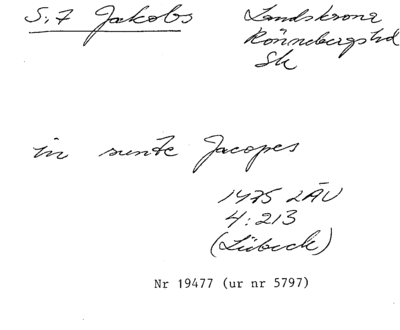 S:t Jakobs
Landskrona
Rönnebergs hd
Sk
in sunte Jacopes
1475 LÄU
4:213
(Lübeck)
Nr 19477 (ur nr 5797)